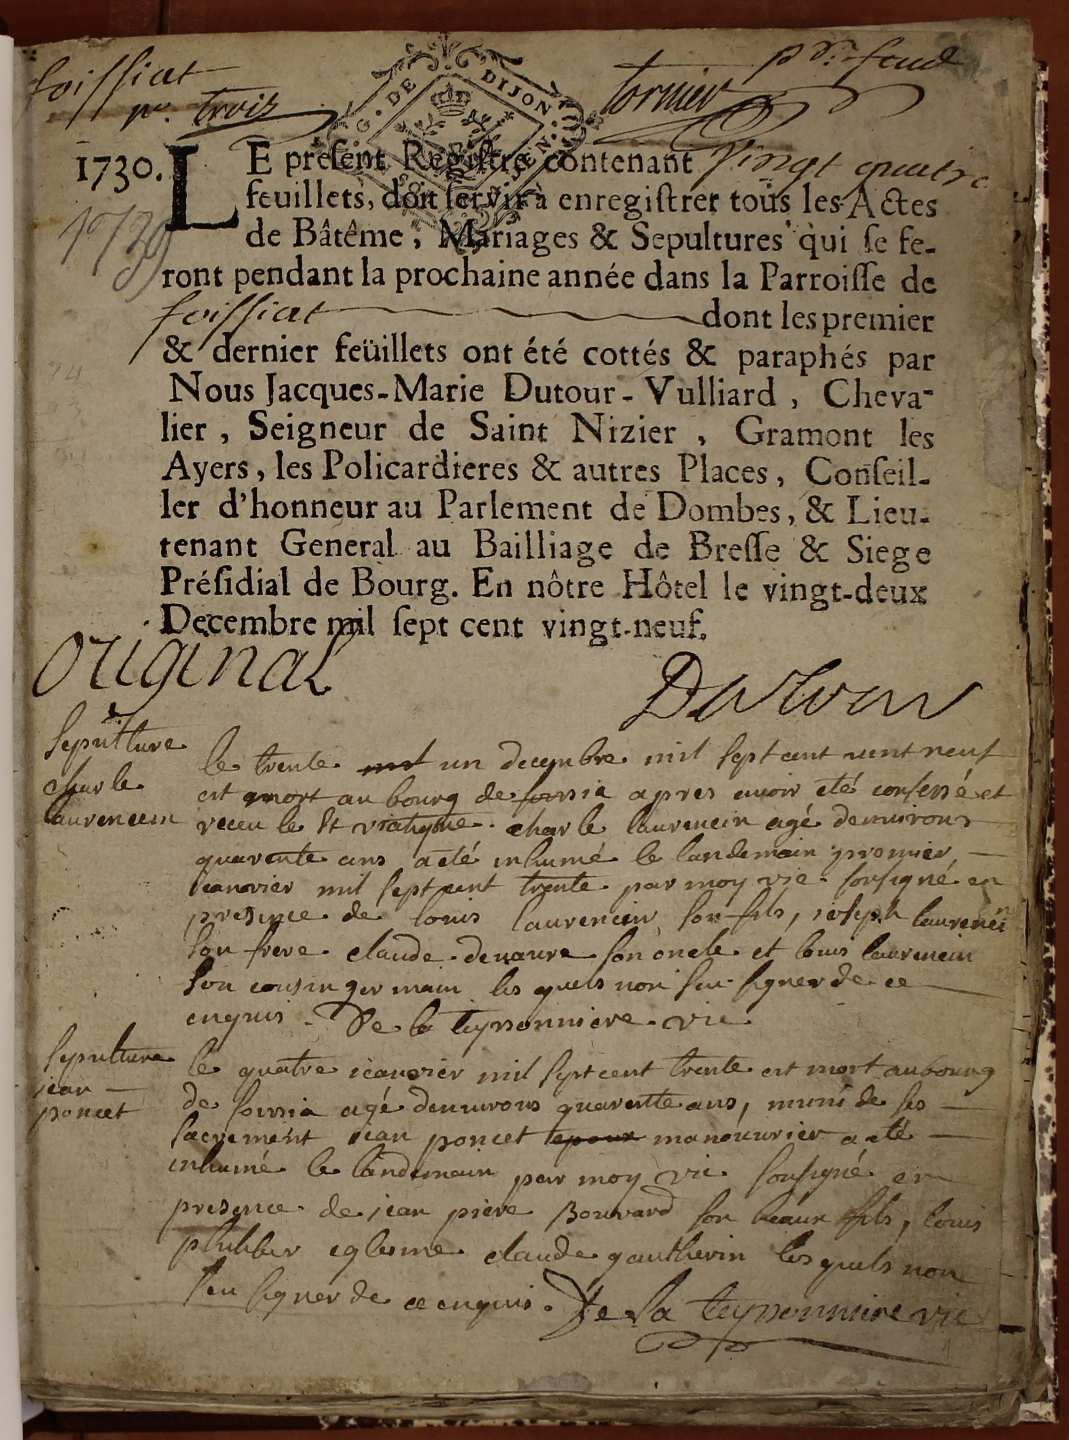 foissiat
no. trois
G. DE DIJON
1730.
LE present Registre contenant vingt quatre
feuillets, doit servir à enregistrer tous les Actes
de Bâtême, Mariages & Sepultures qui se fe-
ront pendant la prochaine année dans la Parroisse de
foissiat dont les premier
& dernier feüillets ont été cottés & paraphés par
Nous Jacques-Marie Dutour-Vulliard, Cheva-
lier, Seigneur de Saint Nizier, Gramont les
Ayers, les Policardieres & autres Places, Conseil-
ler d'honneur au Parlement de Dombes, & Lieu-
tenant General au Bailliage de Bresse & Siege
Présidial de Bourg. En nôtre Hôtel le vingt-deux
Decembre mil sept cent vingt-neuf.
original
Sepulture
charle
laurencin
le trente un decembre mil sept cent vint neuf
est mort au bourg de foissia apres avoir eté confessé et
receu le St viatique charle laurencin agé denvirons
quarente ans a eté inhumé le landemain premier
ianvier mil sept cent trente par moy vic. sousigné en
presence de louis laurencin son fils, ioseph laurencin
son frere claude denaure son oncle et louis laurencin
son cousin germain lesquels non seu signer de ce
enquis. De la teyssonniere vic.
Sepulture
iean
poncet
le quatre ianvier mil sept cent trente est mort au bourg
de foissia agé denvirons quarente ans, muni de ses
sacrement iean poncet manouvrier a eté
inhumé le landemain par moy vic. sousigné en
presence de iean piere Bouvard son beau fils, louis
philiber claude gautherin lesquels non
seu signer de ce enquis. De la teyssonniere vic